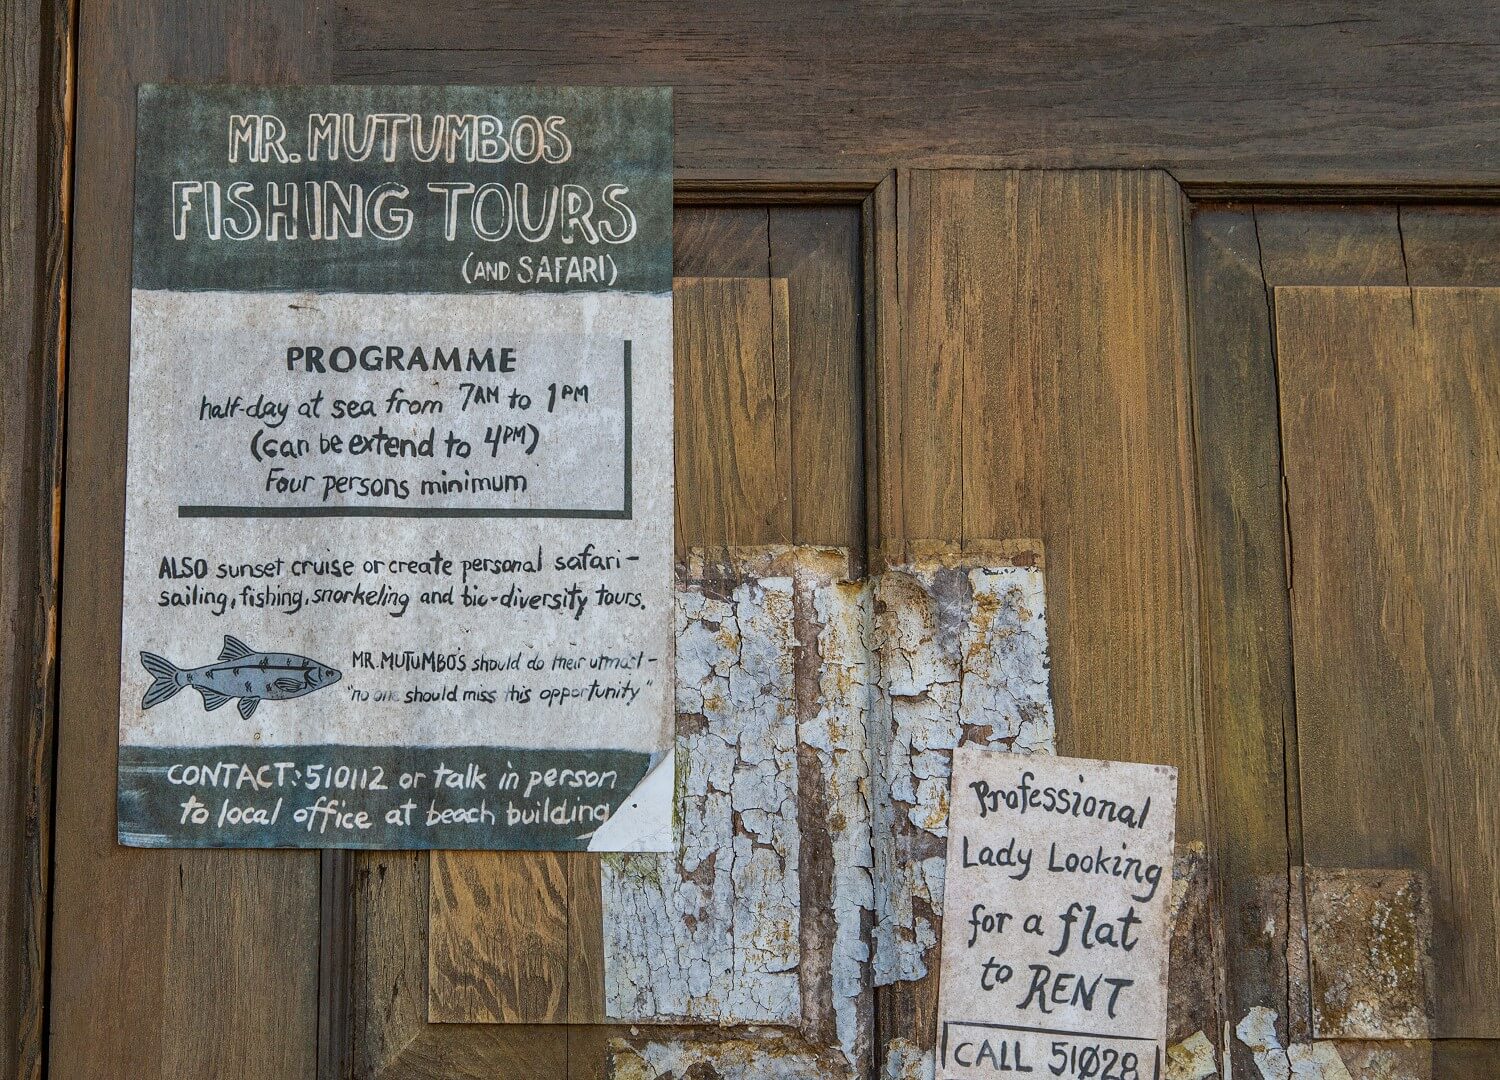 MR. MUTUMBOS
FISHING TOURS
(AND SAFARI)
PROGRAMME
half-day at sea from 7AM to 1PM
(can be extend to 4PM)
Four persons minimum
ALSO sunset cruise or create personal safari-
sailing, fishing, snorkeling and bio-diversity tours.
MR. MUTUMBO'S should do their utmost-
"no one should miss this opportunity"
CONTACT: 510112 or talk in person
to local office at beach building
Professional
Lady Looking
for a flat
to RENT
CALL 51028